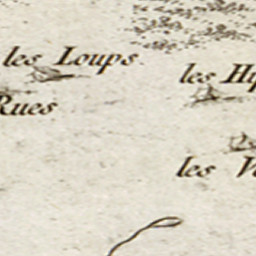 les Loups
les
Rues
les